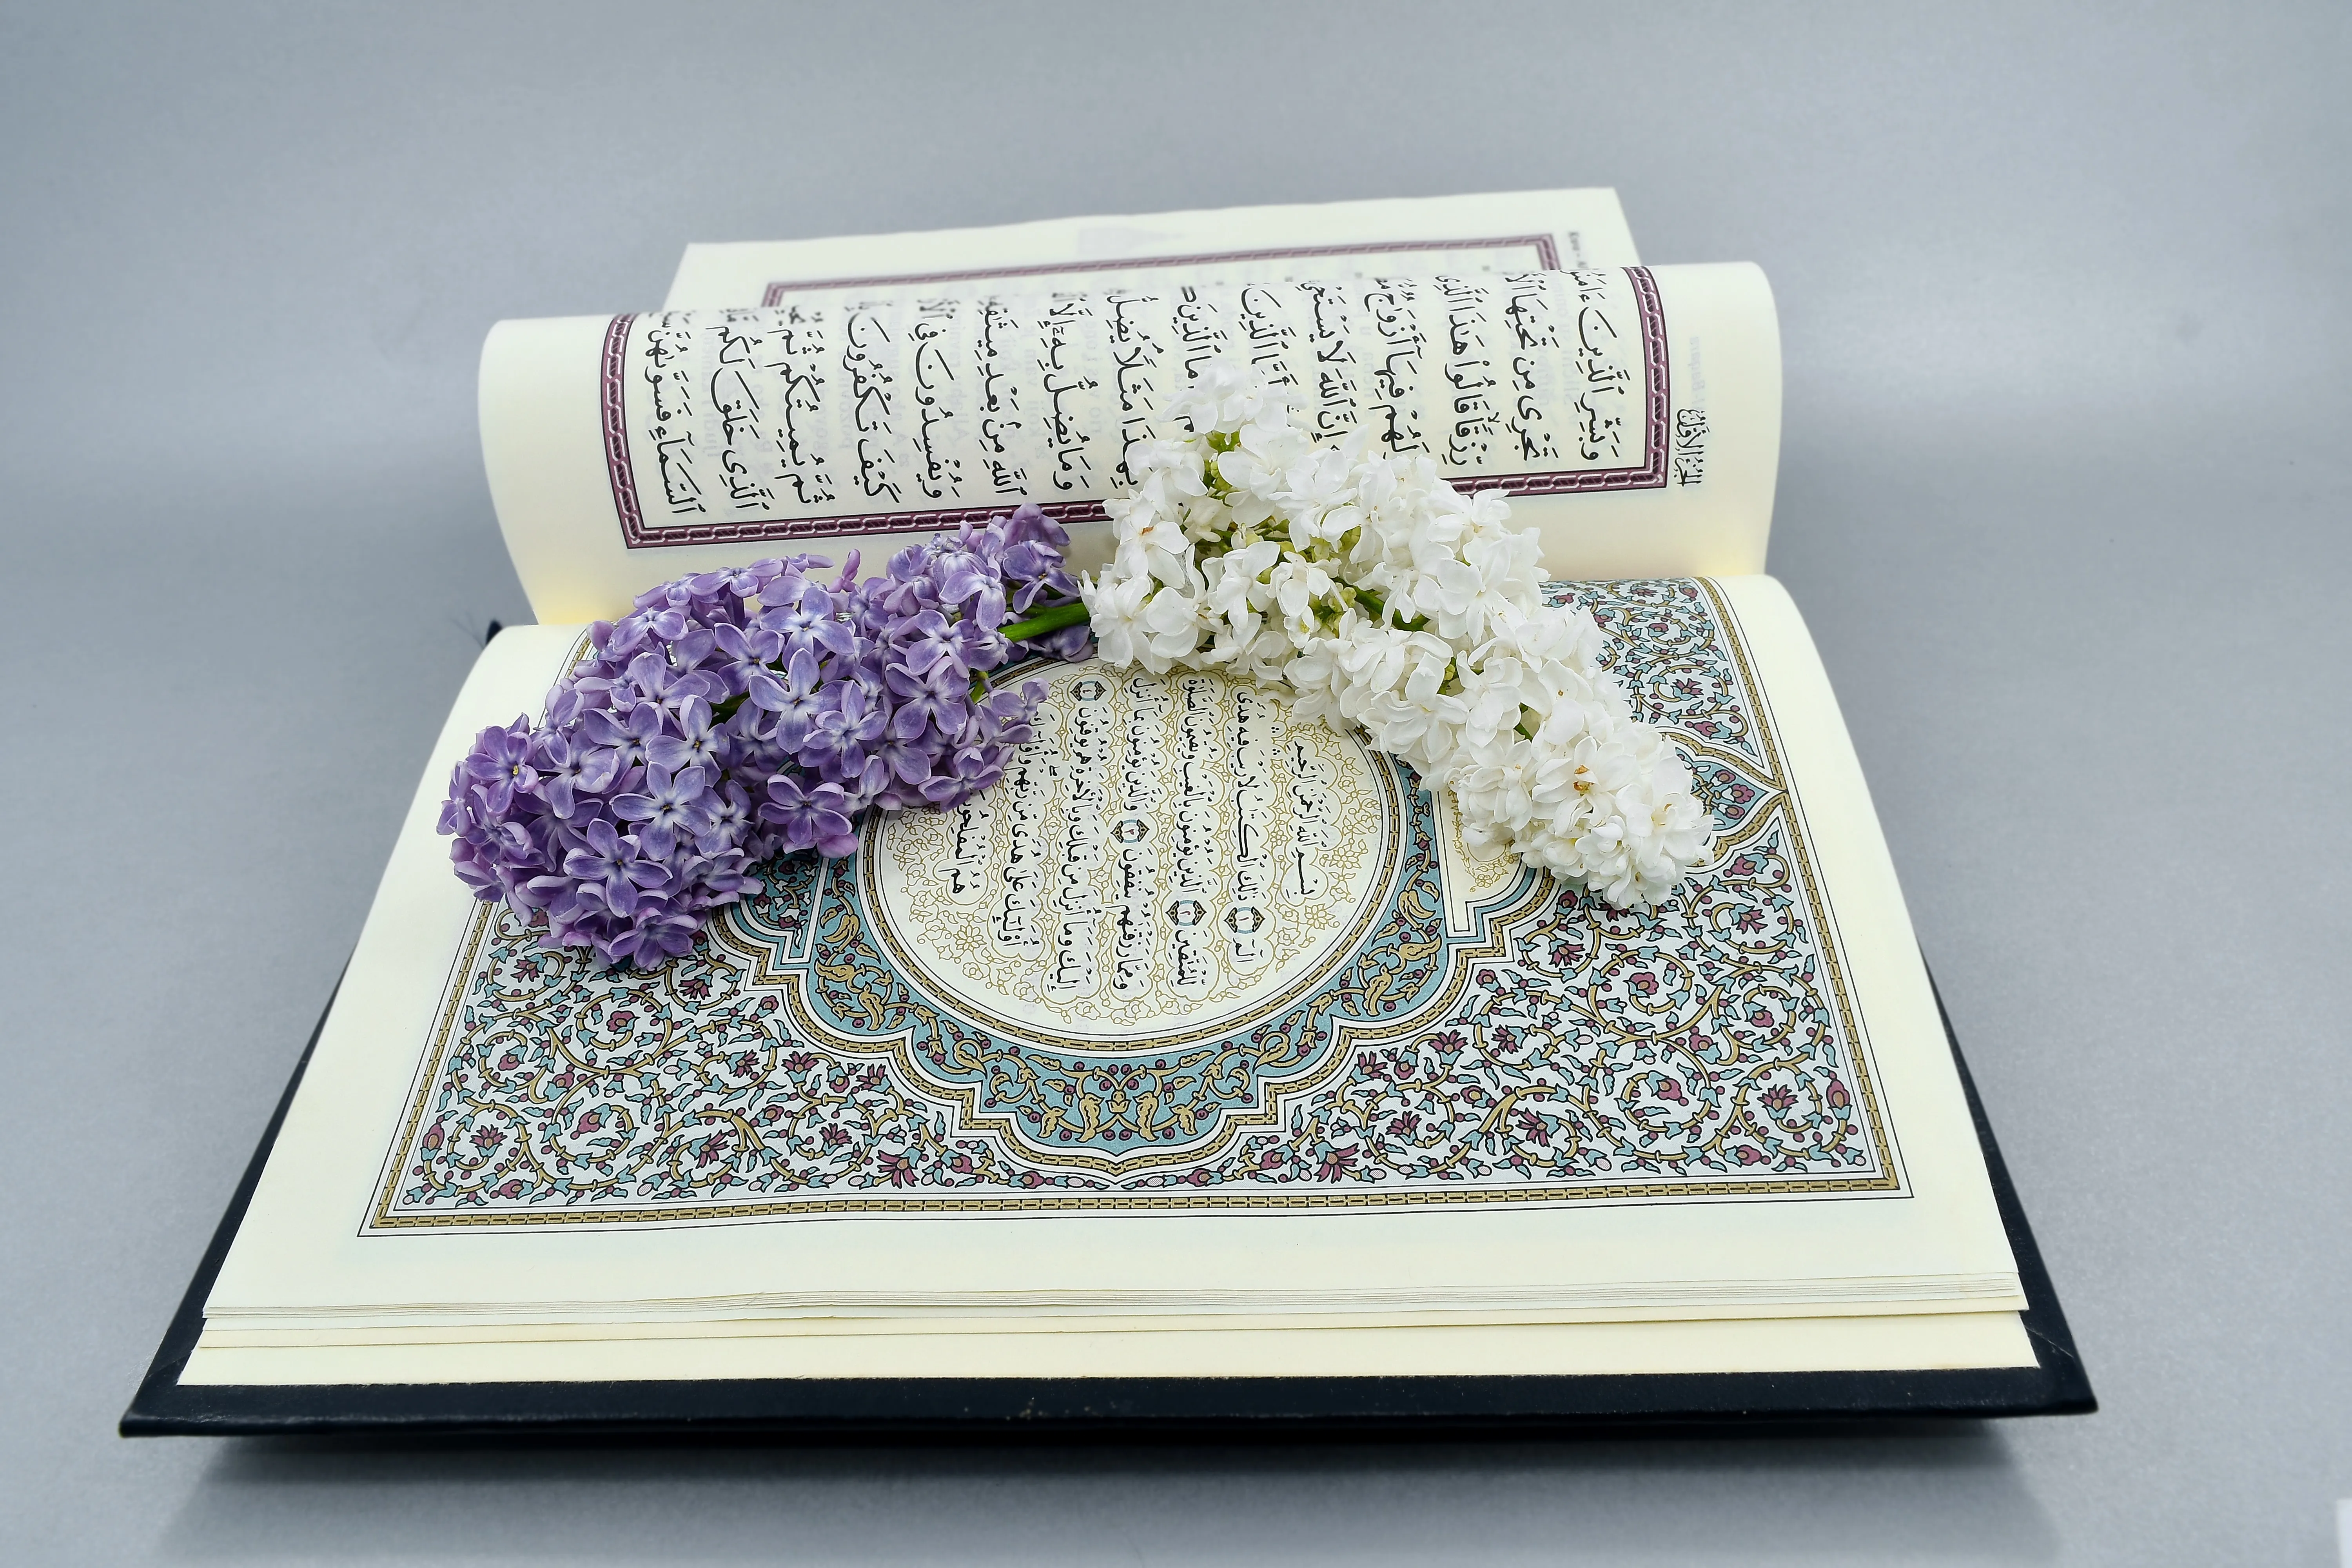 الجزء الأول
وَبَشِّرِ ٱلَّذِينَ ءَامَنُ
تَجْرِى مِن تَحْتِهَا
رِّزْقًا قَالُوا۟ هَٰذَا ٱلَّذِى
لَهُمْ فِيهَآ أَزْوَٰجٌ
إِنَّ ٱللَّهَ لَا يَسْتَحْىِ
ٱلَّذِينَ
مَا ٱلَّذِينَ
بِهَٰذَا مَثَلًا يُضِلُّ
وَمَا يُضِلُّ بِهِۦٓ إِلَّا
ٱللَّهِ مِنۢ بَعْدِ مِيثَٰقِهِ
وَيُفْسِدُونَ فِى
كَيْفَ تَكْفُرُونَ
ثُمَّ يُمِيتُكُمْ ثُمَّ
ٱلَّذِى خَلَقَ لَكُم
ٱلسَّمَآءِ فَسَوَّىٰهُنَّ
بِسْمِ ٱللَّهِ ٱلرَّحْمَٰنِ ٱلرَّحِيمِ
الٓمٓ ١ ذَٰلِكَ ٱلْكِتَٰبُ لَا رَيْبَ فِيهِ هُدًى
لِّلْمُتَّقِينَ ٢ ٱلَّذِينَ يُؤْمِنُونَ بِٱلْغَيْبِ وَيُقِيمُونَ ٱلصَّلَوٰةَ
وَمِمَّا رَزَقْنَٰهُمْ يُنفِقُونَ ٣ وَٱلَّذِينَ يُؤْمِنُونَ بِمَآ أُنزِلَ
إِلَيْكَ وَمَآ أُنزِلَ مِن قَبْلِكَ وَبِٱلْءَاخِرَةِ هُمْ يُوقِنُونَ ٤
أُو۟لَٰٓئِكَ عَلَىٰ هُدًى مِّن رَّبِّهِمْ
هُمُ ٱلْمُفْلِحُونَ